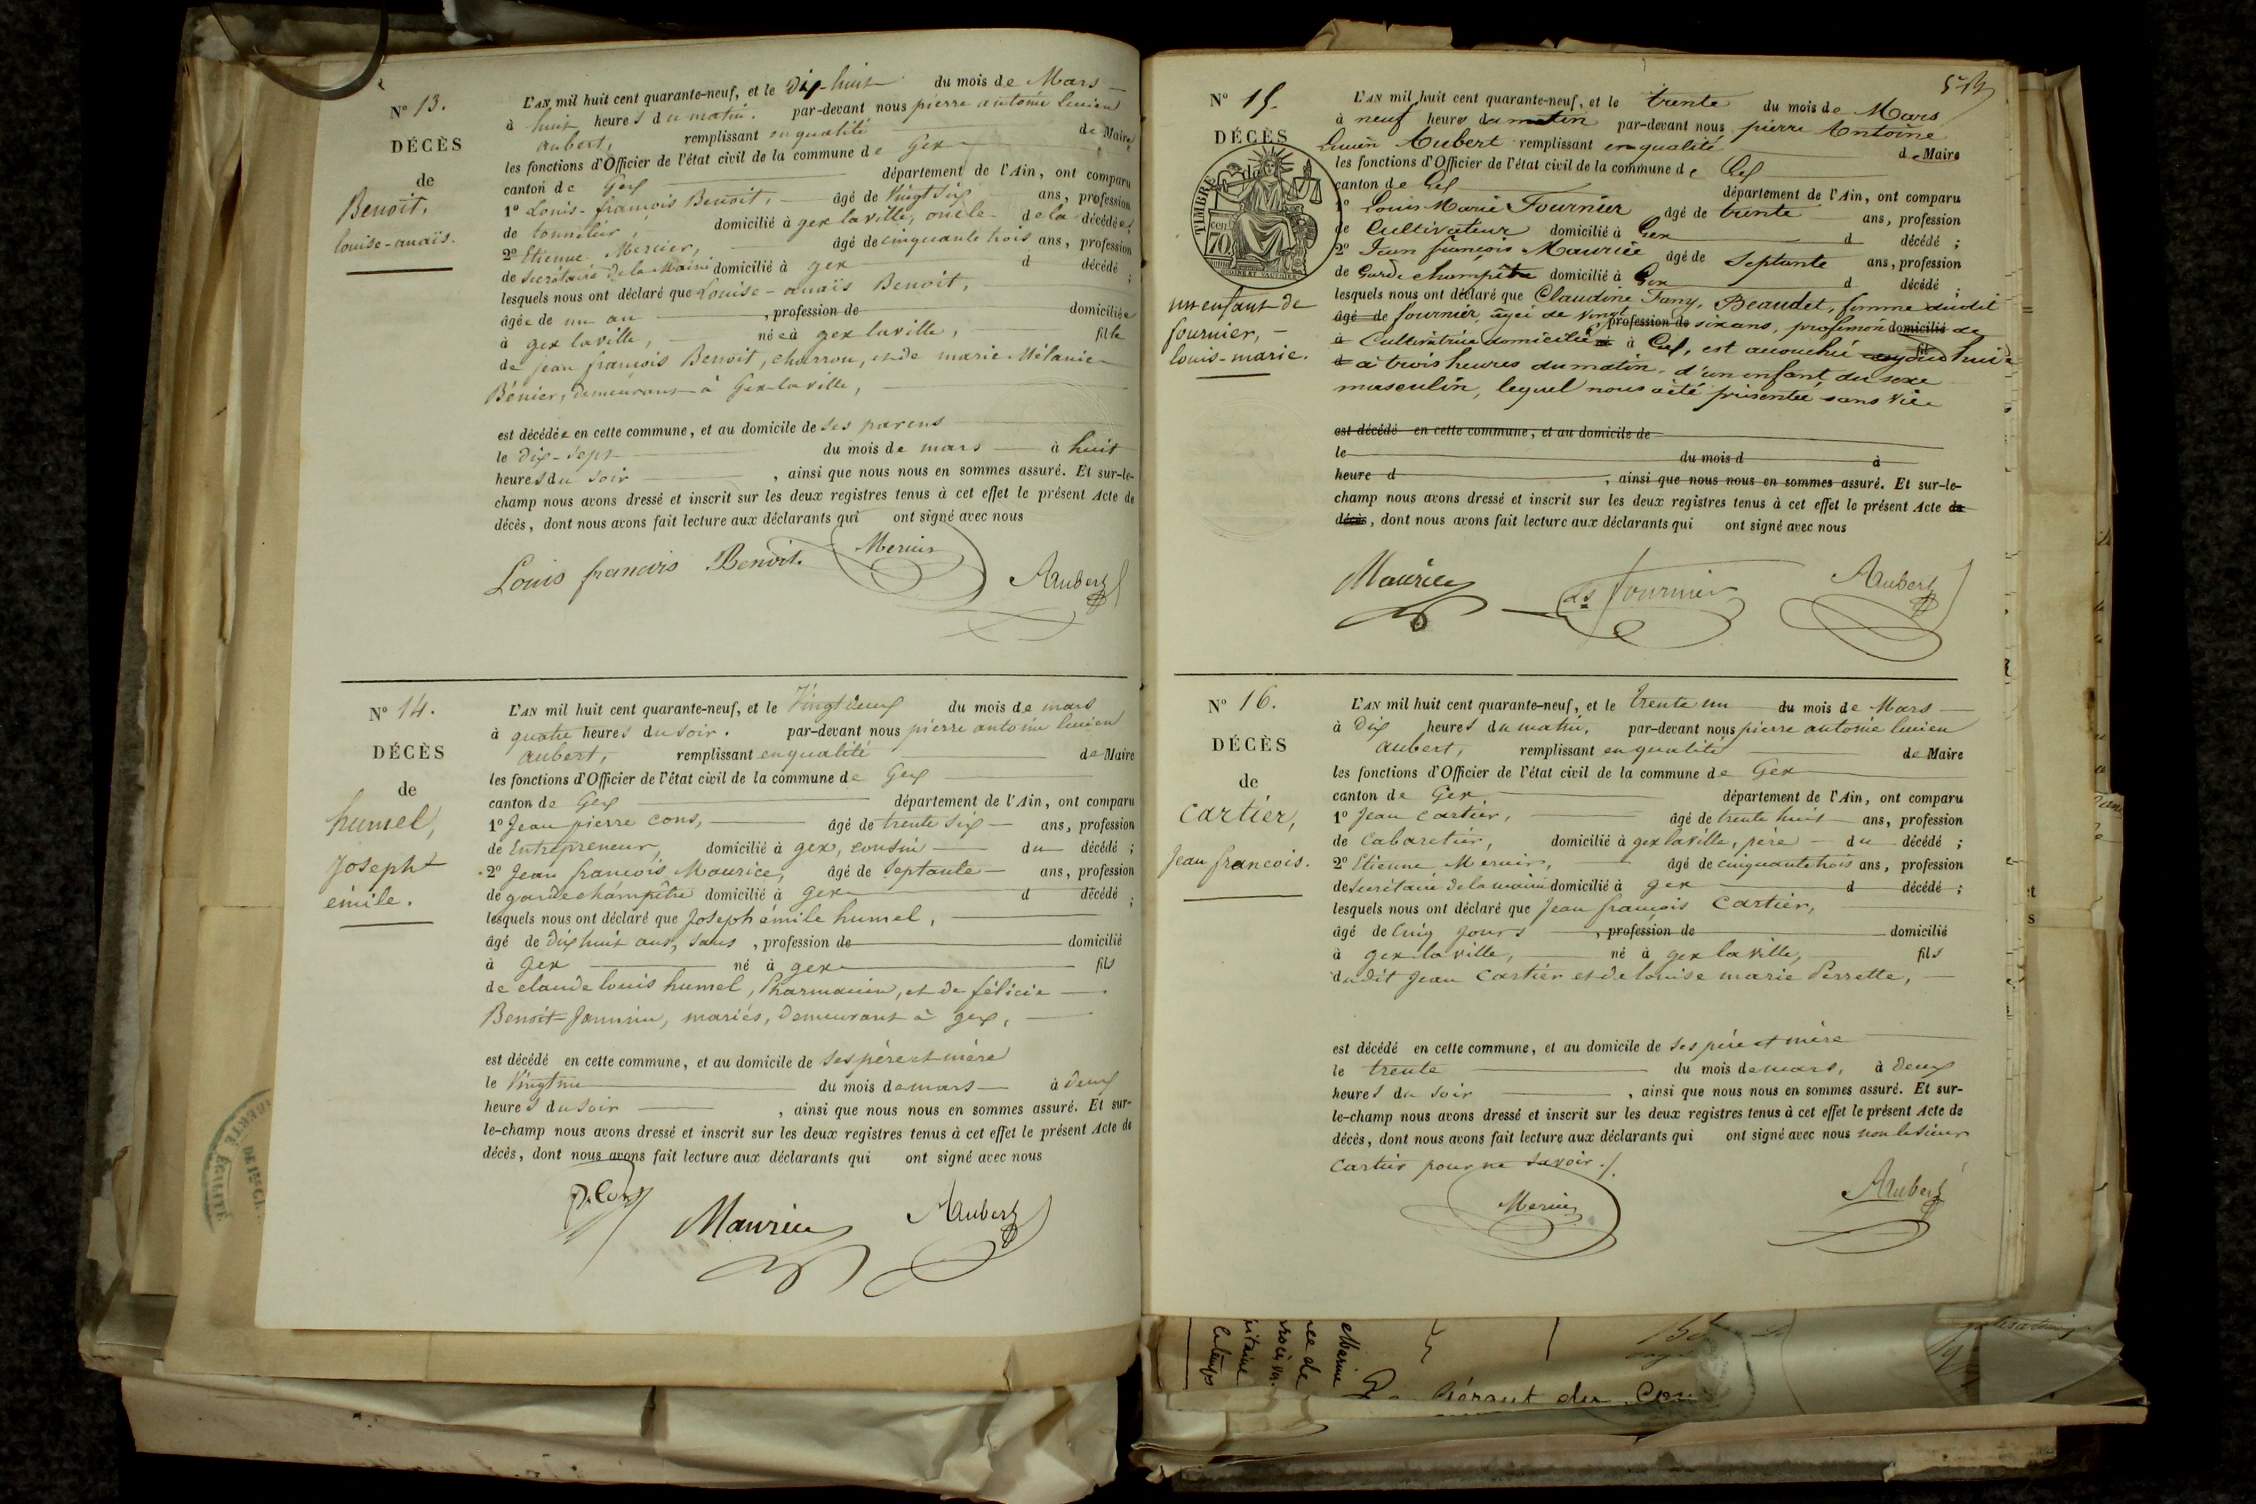 N° 13.
DÉCÈS
de
Benoit,
louise-anaïs.
L'AN mil huit cent quarante-neuf, et le Dix-huit du mois de Mars
à huit heures du matin. par-devant nous pierre antoine lucien
aubert, remplissant en qualité de Maire
les fonctions d'Officier de l'état civil de la commune de Gex
canton de Gex département de l'Ain, ont comparu
1° Louis-françois Benoit, âgé de Vingt six ans, profession
de tonnelier, domicilié à gex la ville, oncle de la décédée;
2° Etienne Mercier, âgé de cinquante trois ans, profession
de Secrétaire de la Mairie domicilié à gex d décédé ;
lesquels nous ont déclaré que Louise-anaïs Benoit,
âgée de un an , profession de domiciliée
à gex la ville, née à gex la ville, fille
de jean françois Benoit, charron, et de marie Mélanie
Bénier, demeurant à Gex-la ville,
est décédée en cette commune, et au domicile de ses parens
le Dix-sept du mois de mars à huit
heures du soir , ainsi que nous nous en sommes assuré. Et sur-le-
champ nous avons dressé et inscrit sur les deux registres tenus à cet effet le présent Acte de
décès, dont nous avons fait lecture aux déclarants qui ont signé avec nous
Louis francois Benoit. Mercier Aubert
N° 14.
DÉCÈS
de
humel,
Joseph
émile.
L'AN mil huit cent quarante-neuf, et le Vingt deux du mois de mars
à quatre heures du soir. par-devant nous pierre antoine lucien
aubert, remplissant en qualité de Maire
les fonctions d'Officier de l'état civil de la commune de Gex
canton de Gex département de l'Ain, ont comparu
1° Jean pierre cons, âgé de trente six ans, profession
de Entrepreneur, domicilié à gex, cousin du décédé ;
2° Jean francois Maurice, âgé de Septante ans, profession
de garde champêtre domicilié à gex d décédé ;
lesquels nous ont déclaré que Joseph émile humel,
âgé de Dix huit ans, sans , profession de domicilié
à gex né à gex fils
de claude louis humel, Pharmacien, et de félicie
Benoit=Jannin, mariés, demeurant à gex,
est décédé en cette commune, et au domicile de ses père et mère
le Vingt un du mois de mars à deux
heures du soir , ainsi que nous nous en sommes assuré. Et sur-
le-champ nous avons dressé et inscrit sur les deux registres tenus à cet effet le présent Acte de
décès, dont nous avons fait lecture aux déclarants qui ont signé avec nous
P. Cons Maurice Aubert
N° 15.
DÉCÈS
de
TIMBRE
70
un enfant de
fournier,
louis-marie.
L'AN mil huit cent quarante-neuf, et le trente du mois de Mars
à neuf heures du matin par-devant nous pierre Antoine
Lucien Aubert remplissant en qualité de Maire
les fonctions d'Officier de l'état civil de la commune de Gex
canton de Gex département de l'Ain, ont comparu
1° Louis Marie Fournier âgé de trente ans, profession
de Cultivateur domicilié à Gex d décédé ;
2° Jean françois Maurice âgé de Septante ans, profession
de Garde champêtre domicilié à Gex d décédé ;
lesquels nous ont déclaré que Claudine Fany, Beaudet, femme dudit
âgé de fournier, âgée de Vingt profession de six ans, profession domicilié de
à Cultivatrice domiciliée à Gex, est accouchée aujourd'hui
d à trois heures du matin, d'un enfant du sexe
masculin, lequel nous a été présenté sans vie
est décédé en cette commune, et au domicile de
le du mois d à
heure d , ainsi que nous nous en sommes assuré. Et sur-le-
champ nous avons dressé et inscrit sur les deux registres tenus à cet effet le présent Acte de
décès, dont nous avons fait lecture aux déclarants qui ont signé avec nous
Maurice Ls Fournier Aubert
N° 16.
DÉCÈS
de
Cartier,
Jean francois.
L'AN mil huit cent quarante-neuf, et le trente un du mois de Mars
à Dix heures du matin, par-devant nous pierre antoine lucien
aubert, remplissant en qualité de Maire
les fonctions d'Officier de l'état civil de la commune de Gex
canton de Gex département de l'Ain, ont comparu
1° Jean Cartier, âgé de trente huit ans, profession
de Cabaretier, domicilié à gex la ville, père du décédé ;
2° Etienne Mercier, âgé de cinquante trois ans, profession
de Secrétaire de la mairie domicilié à gex d décédé ;
lesquels nous ont déclaré que Jean françois Cartier,
âgé de cinq jours , profession de domicilié
à gex la ville, né à gex la ville, fils
dudit Jean Cartier et de louise marie Perrette,
est décédé en cette commune, et au domicile de ses père et mère
le trente du mois de mars, à deux
heures du soir , ainsi que nous nous en sommes assuré. Et sur-
le-champ nous avons dressé et inscrit sur les deux registres tenus à cet effet le présent Acte de
décès, dont nous avons fait lecture aux déclarants qui ont signé avec nous non le sieur
Cartier pour ne savoir.
Mercier Aubert